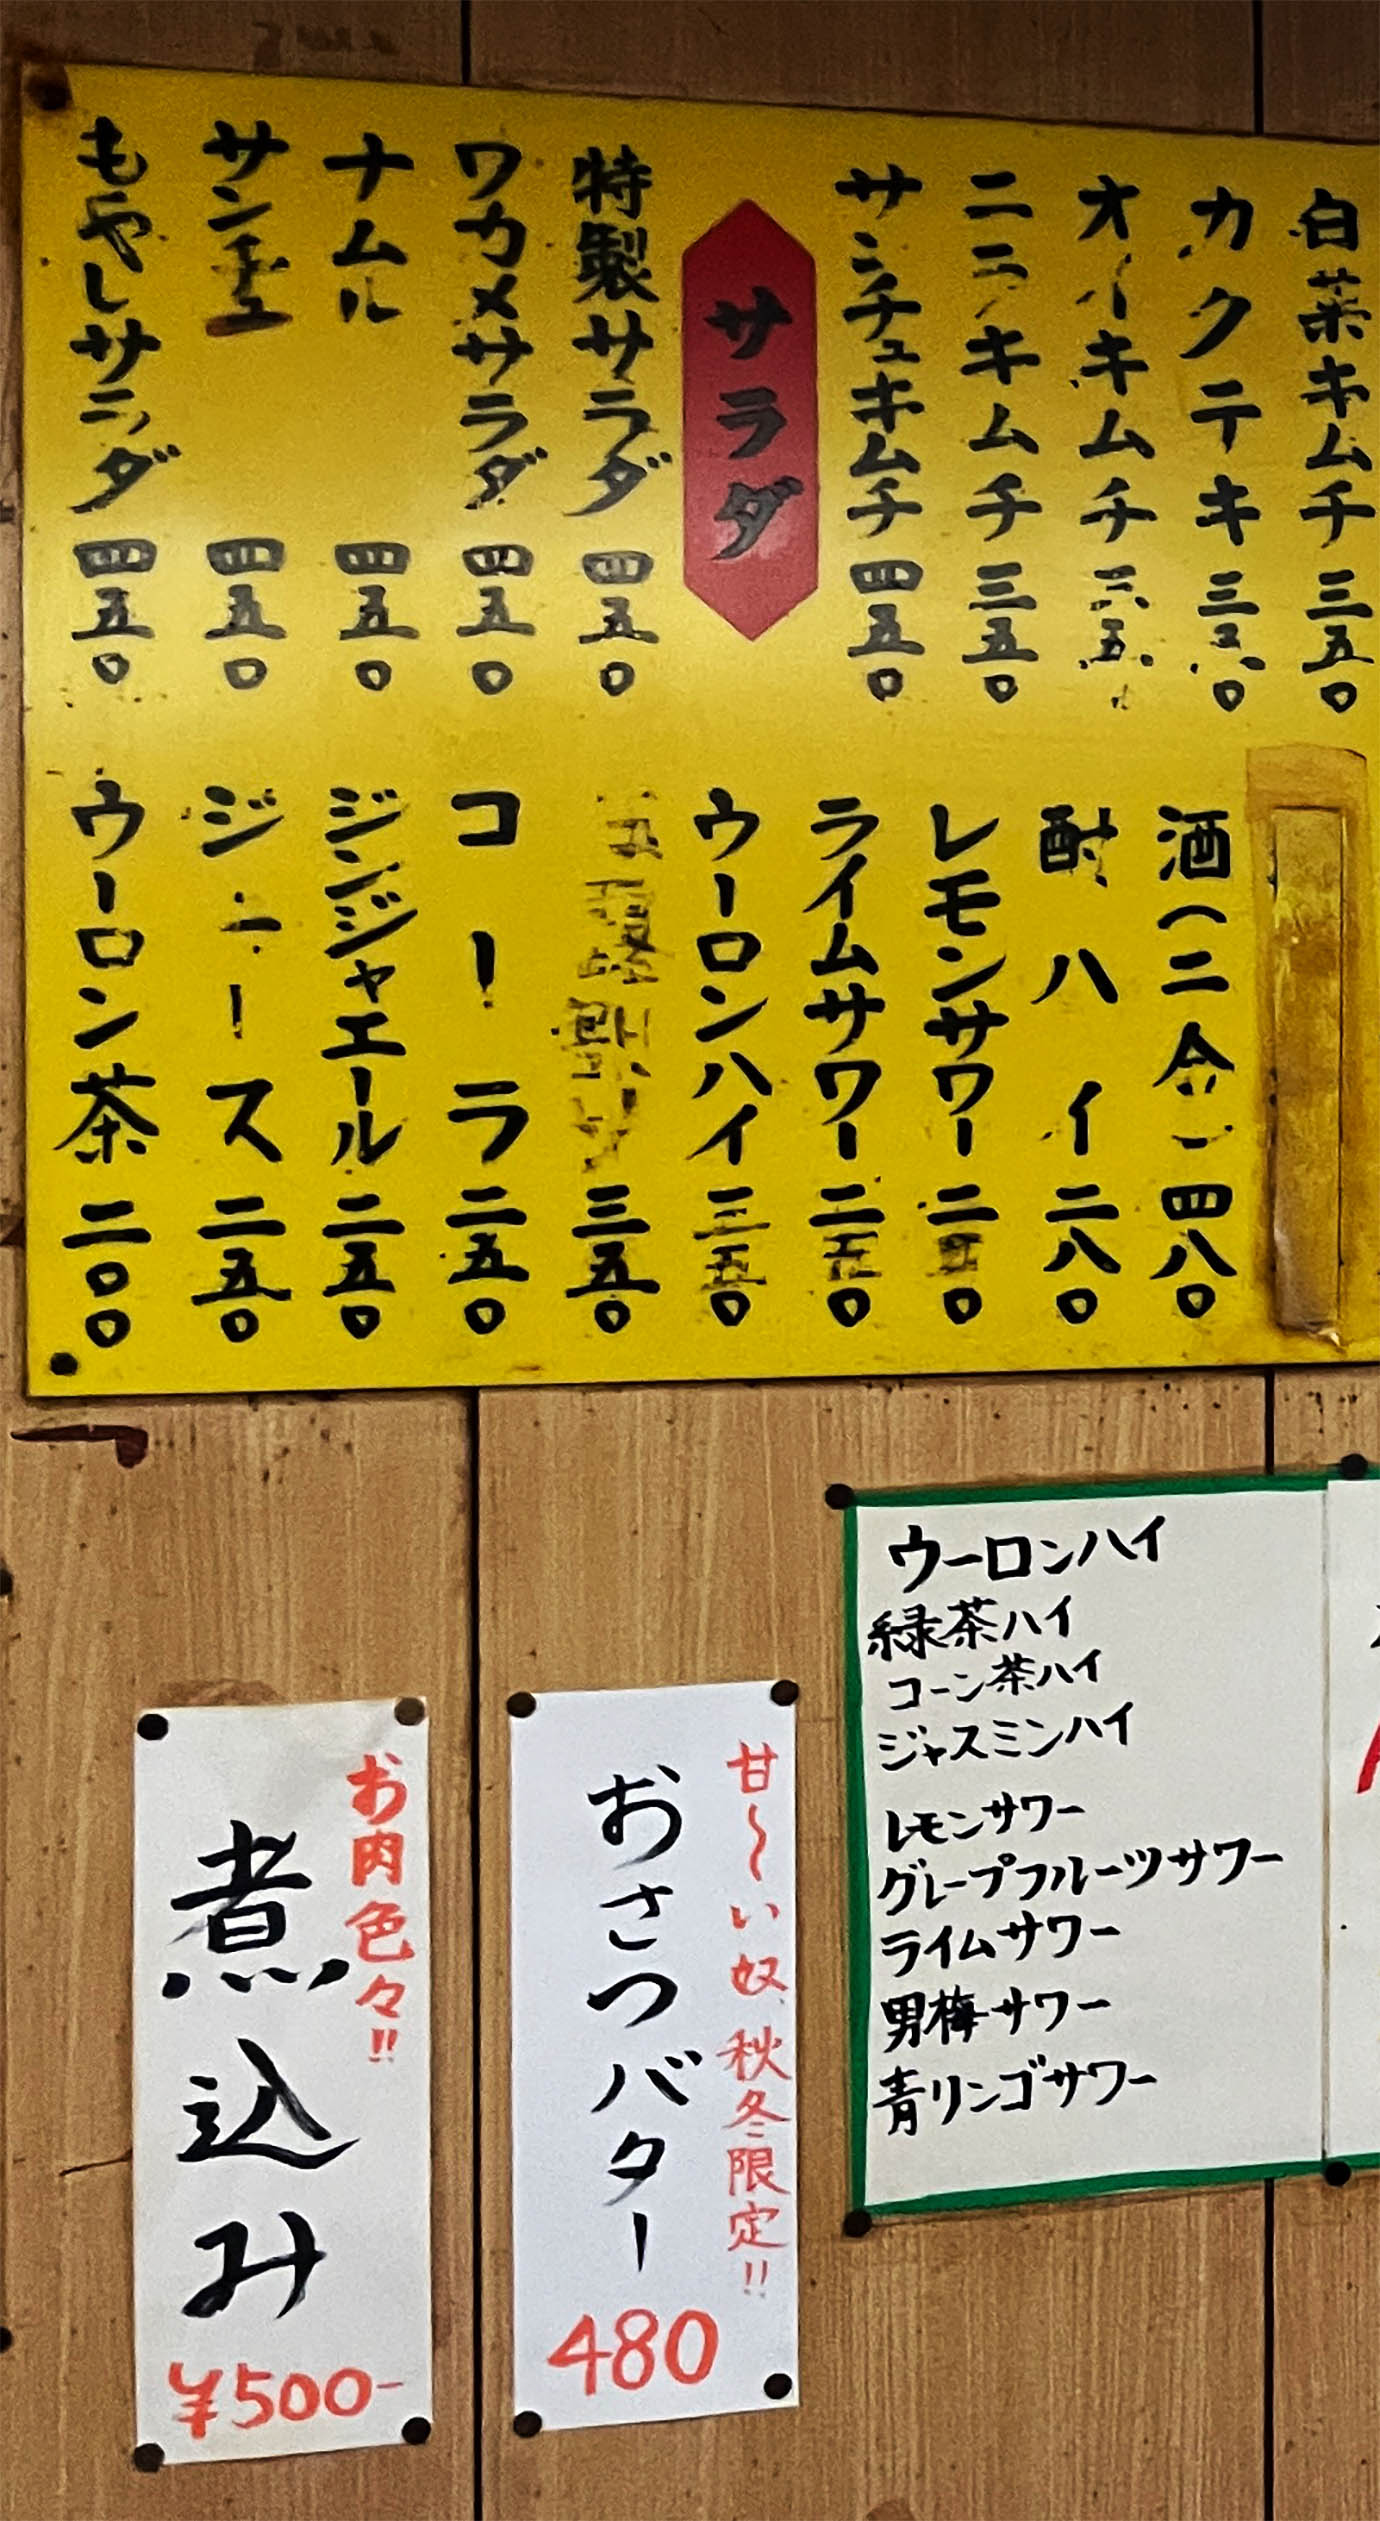 白菜キムチ 三五〇
カクテキ 三五〇
オイキムチ 三五〇
ニラキムチ 三五〇
サンチュキムチ 四五〇
サラダ
特製サラダ 四五〇
ワカメサラダ 四五〇
ナムル 四五〇
サンチュ 四五〇
もやしサラダ 四五〇
酒(二合) 四八〇
酎ハイ 二八〇
レモンサワー 三五〇
ライムサワー 三五〇
ウーロンハイ 三五〇
三五〇
コーラ 二五〇
ジンジャエール 二五〇
ジュース 二五〇
ウーロン茶 二〇〇
ウーロンハイ
緑茶ハイ
コーン茶ハイ
ジャスミンハイ
レモンサワー
グレープフルーツサワー
ライムサワー
男梅サワー
青リンゴサワー
甘〜〜い奴、秋冬限定!!
おさつバター
480
お肉色々!!
煮込み
¥500-